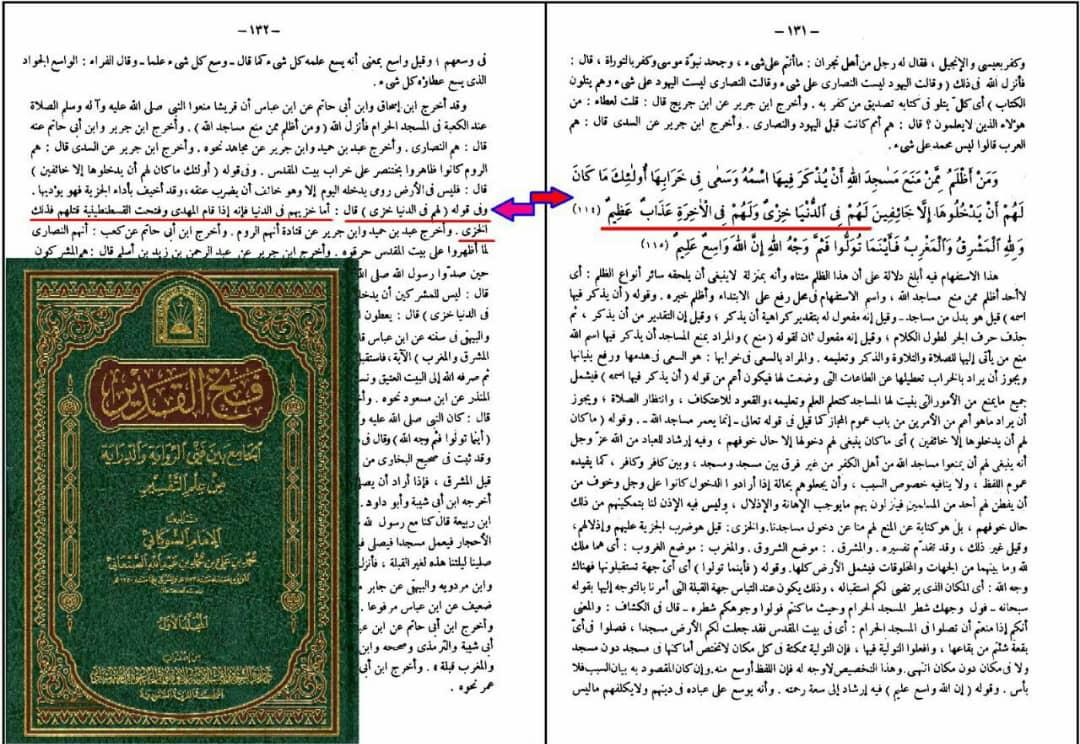 — ١٣١ —
وكفر بعيسى والإنجيل ، فقال له رجل من أهل نجران : ما أنتم على شىء ، وجحد نبوّة موسى وكفر بالتوراة ، قال :
فأنزل الله فى ذلك ( وقالت اليهود ليست النصارى على شىء وقالت النصارى ليست اليهود على شىء وهم يتلون
الكتاب ) أى كلّ يتلو فى كتابه تصديق من كفر به . وأخرج ابن جرير عن ابن جريج قال : قلت لعطاء : من
هؤلاء الذين لايعلمون ؟ قال : هم أمم كانت قبل اليهود والنصارى . وأخرج ابن جرير عن السدى قال : هم
العرب قالوا ليس محمد على شىء .
وَمَنْ أَظْلَمُ مِمَّن مَنَعَ مَسٰجِدَ اللهِ أَنْ يُذْكَرَ فِيهَا اسْمُهُ وَسَعٰى فِى خَرَابِهَا أُولٰئِكَ مَا كَانَ
لَهُمْ أَنْ يَدْخُلُوهَا إِلَّا خَائِفِينَ لَهُمْ فِى الدُّنْيَا خِزْىٌ وَلَهُمْ فِى الْآخِرَةِ عَذَابٌ عَظِيمٌ (١١٤)
وَلِلهِ الْمَشْرِقُ وَالْمَغْرِبُ فَأَيْنَمَا تُوَلُّوا فَثَمَّ وَجْهُ اللهِ إِنَّ اللهَ وَاسِعٌ عَلِيمٌ (١١٥)
هذا الاستفهام فيه أبلغ دلالة على أن هذا الظلم متناه وأنه بمنزلة لاينبغى أن يلحقه سائر أنواع الظلم : أى
لا أحد أظلم ممن منع مساجد الله ، واسم الاستفهام فى محل رفع على الابتداء وأظلم خبره . وقوله ( أن يذكر فيها
اسمه ) قيل هو بدل من مساجد ـ وقيل إنه مفعول له بتقدير كراهية أن يذكر ؛ وقيل إن التقدير من أن يذكر ، ثم
حذف حرف الجر لطول الكلام ، وقيل إنه مفعول ثان لقوله ( منع ) والمراد بمنع المساجد أن يذكر فيها اسم الله
منع من يأتى إليها للصلاة والتلاوة والذكر وتعليمه . والمراد بالسعى فى خرابها : هو السعى فى هدمها ورفع بنيانها
ويجوز أن يراد بالخراب تعطيلها عن الطاعات التى وضعت لها فيكون أعم من قوله ( أن يذكر فيها اسمه ) فيشمل
جميع مايمنع من الأمور التى بنيت لها المساجد كتعلم العلم وتعليمه ، والقعود للاعتكاف ، وانتظار الصلاة ؛ ويجوز
أن يراد ماهو أعم من الأمرين من باب عموم المجاز كما قيل فى قوله تعالى ـ إنما يعمر مساجد الله ـ . وقوله ( ما كان
لهم أن يدخلوها إلا خائفين ) أى ما كان ينبغى لهم دخولها إلا حال خوفهم ، وفيه إرشاد للعباد من الله عز وجل
أنه ينبغى لهم أن يمنعوا مساجد الله من أهل الكفر من غير فرق بين مسجد ومسجد ، وبين كافر وكافر ، كما يفيده
عموم اللفظ ، ولا ينافيه خصوص السبب ، وأن يجعلوهم بحالة إذا أرادوا الدخول كانوا على وجل وخوف من
أن يفطن لهم أحد من المسلمين فينزلون بهم مايوجب الإهانة والإذلال ، وليس فيه الإذن لنا بتمكينهم من ذلك
حال خوفهم ، بل هو كناية عن المنع لهم منا عن دخول مساجدنا . والخزى : قيل هو ضرب الجزية عليهم وإذلالهم ،
وقيل غير ذلك ، وقد تقدّم تفسيره . والمشرق : موضع الشروق . والمغرب : موضع الغروب : أى هما ملك
لله وما بينهما من الجهات والمخلوقات فيشمل الأرض كلها . وقوله ( فأينما تولوا ) أى أىّ جهة تستقبلونها فهناك
وجه الله : أى المكان الذى يرتضى لكم استقباله ، وذلك يكون عند التباس جهة القبلة التى أمرنا بالتوجه إليها بقوله
سبحانه ـ فول وجهك شطر المسجد الحرام وحيث ما كنتم فولوا وجوهكم شطره ـ قال فى الكشاف : والمعنى
أنكم إذا منعتم أن تصلوا فى المسجد الحرام : أى فى بيت المقدس فقد جعلت لكم الأرض مسجدا ، فصلوا فى أىّ
بقعة شئتم من بقاعها ، وافعلوا التولية فيها ، فإن التولية ممكنة فى كل مكان لاتختص أماكنها فى مسجد دون مسجد
ولا فى مكان دون مكان انتهى . وهذا التخصيص لاوجه له فإن اللفظ أوسع منه . وإن كان المقصود به بيان السبب فلا
بأس . وقوله ( إن الله واسع عليم ) فيه إرشاد إلى سعة رحمته . وأنه يوسع على عباده فى دينهم ولايكلفهم ماليس
— ١٣٢ —
فى وسعهم ؛ وقيل واسع بمعنى أنه يسع علمه كل شىء كما قال ـ وسع كل شىء علما ـ وقال الفراء : الواسع الجواد
الذى يسع عطاؤه كل شىء .
وقد أخرج ابن إسحاق وابن أبى حاتم عن ابن عباس أن قريشا منعوا النبى صلى الله عليه وآله وسلم الصلاة
عند الكعبة فى المسجد الحرام فأنزل الله ( ومن أظلم ممن منع مساجد الله ) . وأخرج ابن جرير وابن أبى حاتم عنه
قال : هم النصارى . وأخرج عبد بن حميد وابن جرير عن مجاهد نحوه . وأخرج ابن جرير عن السدى قال : هم
الروم كانوا ظاهروا بختنصر على خراب بيت المقدس . وفى قوله ( أولئك ماكان لهم أن يدخلوها إلا خائفين )
قال : فليس فى الأرض رومى يدخله اليوم إلا وهو خائف أن يضرب عنقه ، وقد أخيف بأداء الجزية فهو يؤديها .
وفى قوله ( لهم فى الدنيا خزى ) قال : أما خزيهم فى الدنيا فإنه إذا قام المهدى وفتحت القسطنطينية قتلهم فذلك
الخزى . وأخرج عبد بن حميد وابن جرير عن قتادة أنهم الروم . وأخرج ابن أبى حاتم عن كعب : أنهم النصارى
لما أظهروا على بيت المقدس حرقوه . وأخرج ابن جرير عن عبد الرحمن بن زيد بن أسلم قال : هم المشركون
حين صدّوا رسول الله صلى الله
قال : ليس للمشركين أن يدخلوا
فى الدنيا خزى ) قال : يعطون
والبيهقى فى سننه عن ابن عباس قال
المشرق والمغرب ) الآية ، فاستقبل
ثم صرفه الله إلى البيت العتيق ونس
المنذر عن ابن مسعود نحوه .
قال : كان النبى صلى الله عليه و
( أينما تولوا فثم وجه الله ) وقال فى
وقد ثبت فى صحيح البخارى من
قبل المشرق ، فإذا أراد أن يصل
أخرجه ابن أبى شيبة وأبو داود
ابن ربيعة قال كنا مع رسول الله
الأحجار فيعمل مسجدا فيصلى فيه
صلينا ليلتنا هذه لغير القبلة ، فأنزل
وابن مردويه والبيهقى عن جابر
ضعيف عن ابن عباس مرفوعا .
وأخرج ابن أبى حاتم عن ابن عباس
أبى شيبة والترمذى وصححه وابن
والمغرب قبلة » . وأخرج ابن أبى
عمر نحوه .
فتح القدير
الجامع بين فنّي الرواية والدراية
من علم التفسير
تأليف
الإمام الشوكاني
محمد بن علي بن محمد بن عبد الله الصنعاني
المجلد الأول